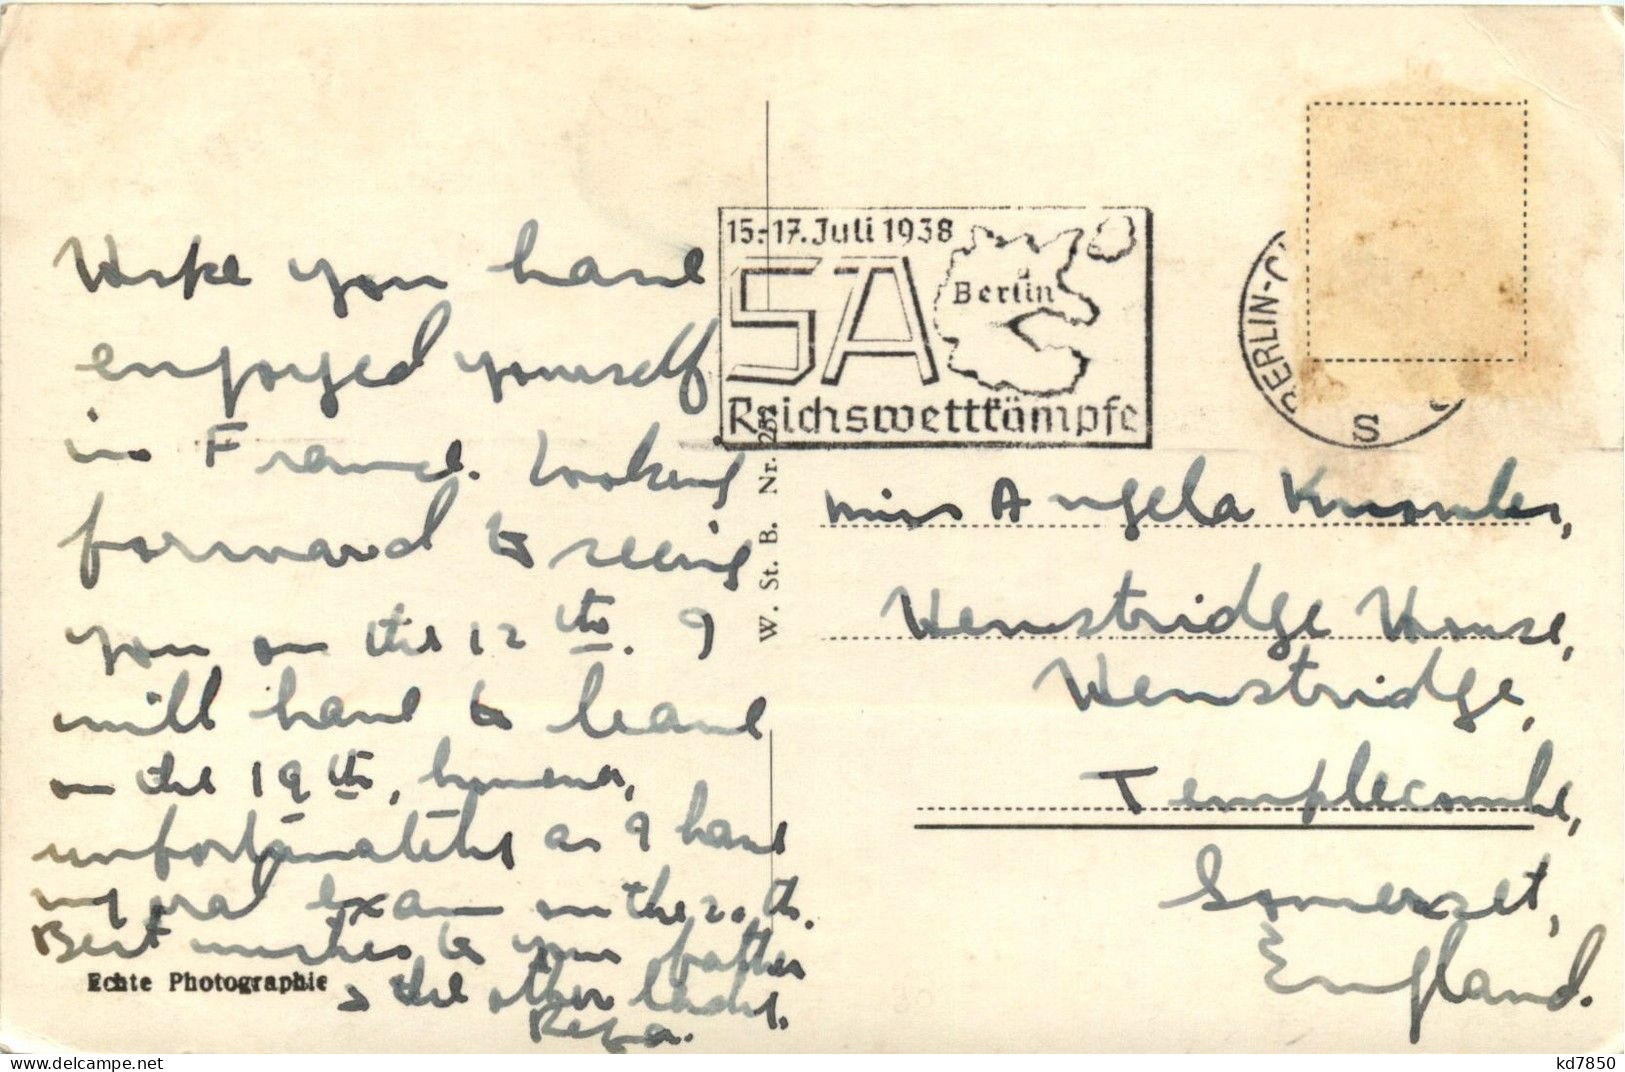 Hope you have
enjoyed yourself
in France. Looking
forward to seeing
you on the 12th. I
will have to leave
on the 19th, however,
unfortunately as I have
my oral exam on the 20th.
Best wishes to your father
& the other lads.
Reza.
Echte Photographie
W. St. B. Nr. 252
15.-17. Juli 1938
SA
Berlin
Reichswettkämpfe
BERLIN-C
S
Miss Angela
Henstridge House,
Henstridge,
Templecombe,
Somerset,
England.
kd7850